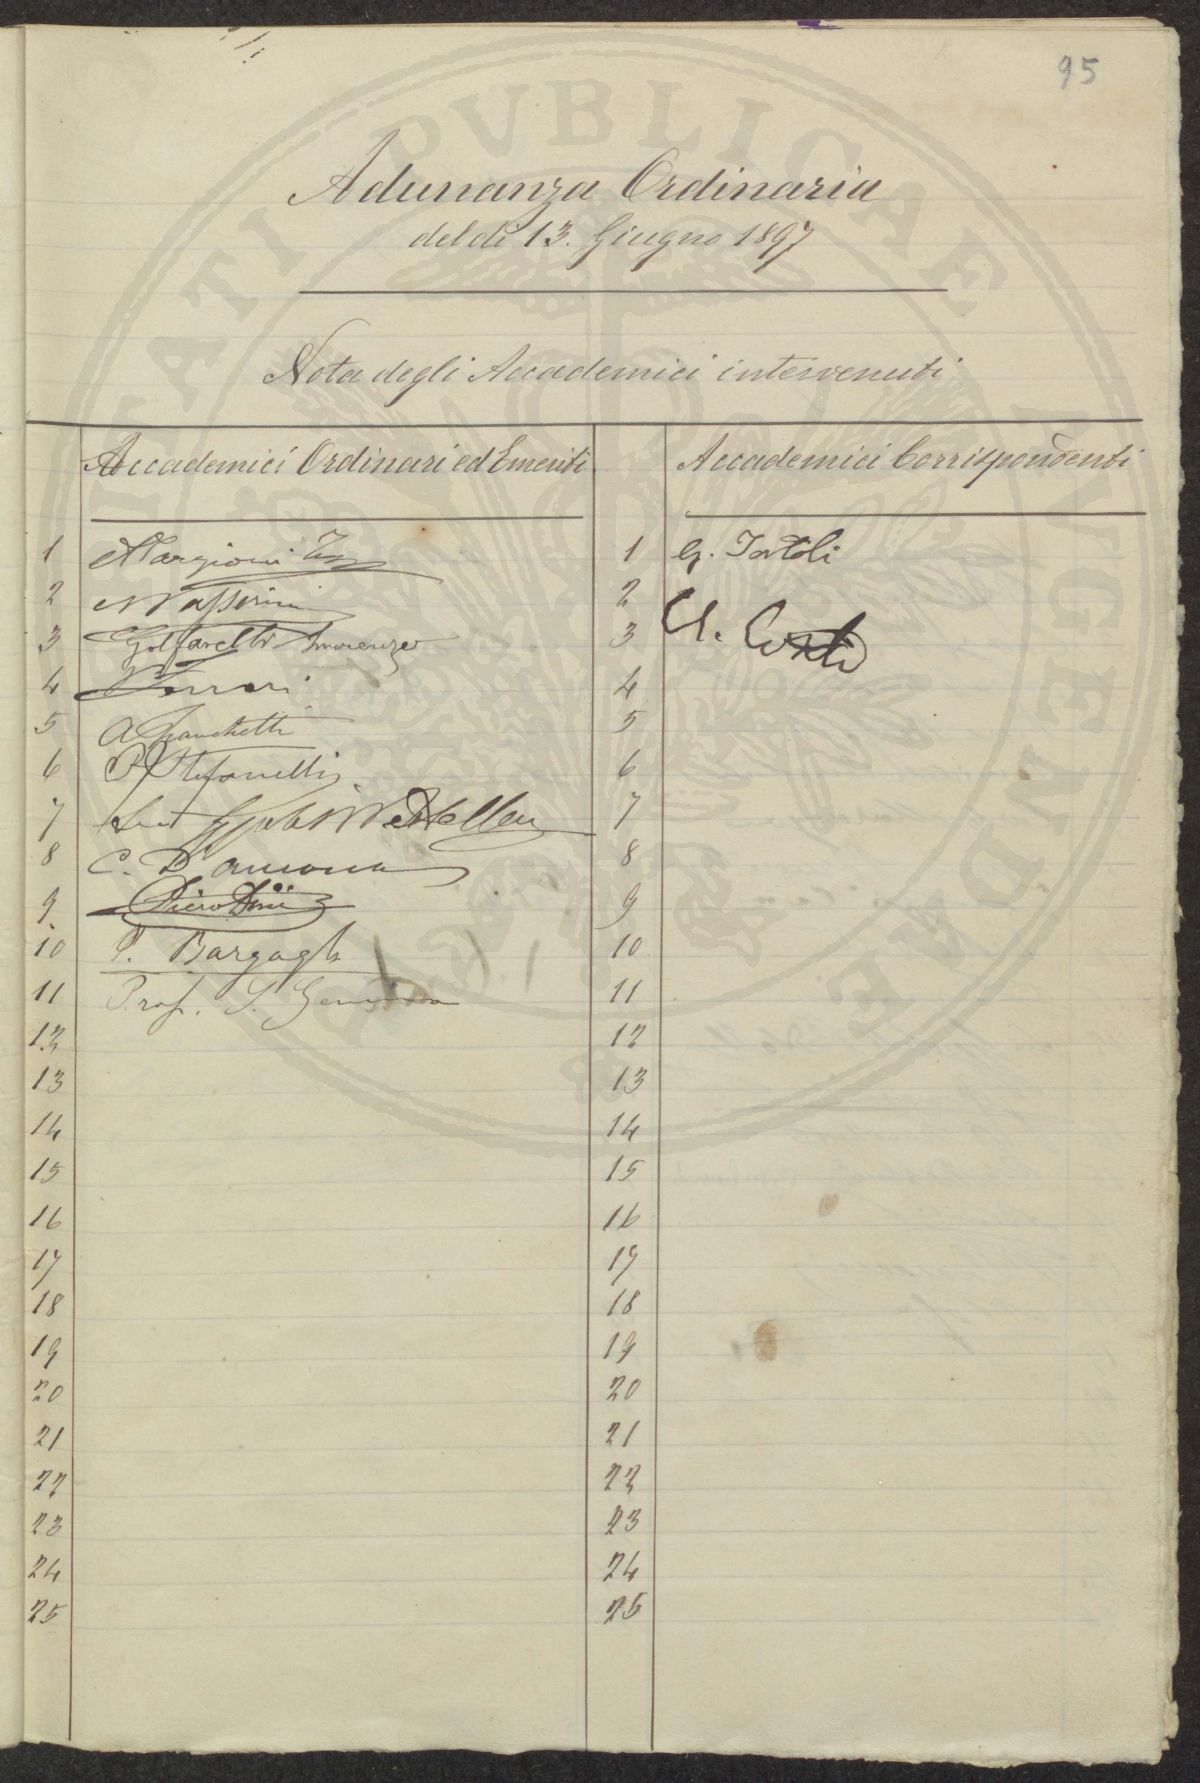 95
Adunanza Ordinaria
del dì 13. Giugno 1897
Nota degli Accademici intervenuti
Accademici Ordinari ed Emeriti
Accademici Corrispondenti
1
1 G. Tortoli
2
2
3 Golfarelli Innocenzo
3
4 Ferrari
4
5 A. Franchetti
5
6 P. Stefanelli
6
7
7
8 C. D'Ancona
8
9 Piero Dini
9
10 P. Bargagli
10
11 Prof. S. Gemma
11
12
12
13
13
14
14
15
15
16
16
17
17
18
18
19
19
20
20
21
21
22
22
23
23
24
24
25
25
PVBLICAE